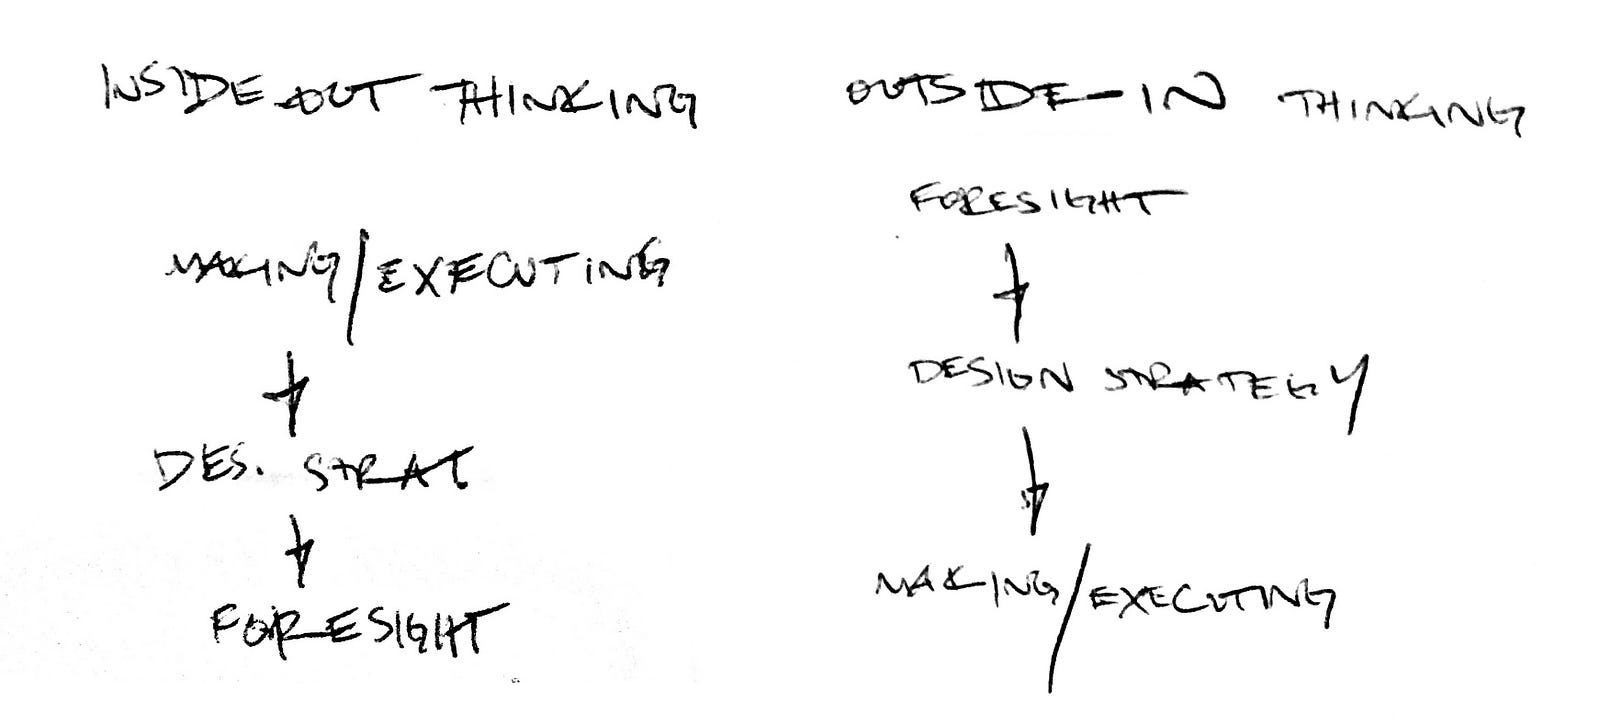 INSIDE-OUT THINKING
MAKING/EXECUTING
DES. STRAT
FORESIGHT
OUTSIDE-IN THINKING
FORESIGHT
DESIGN STRATEGY
MAKING/EXECUTING